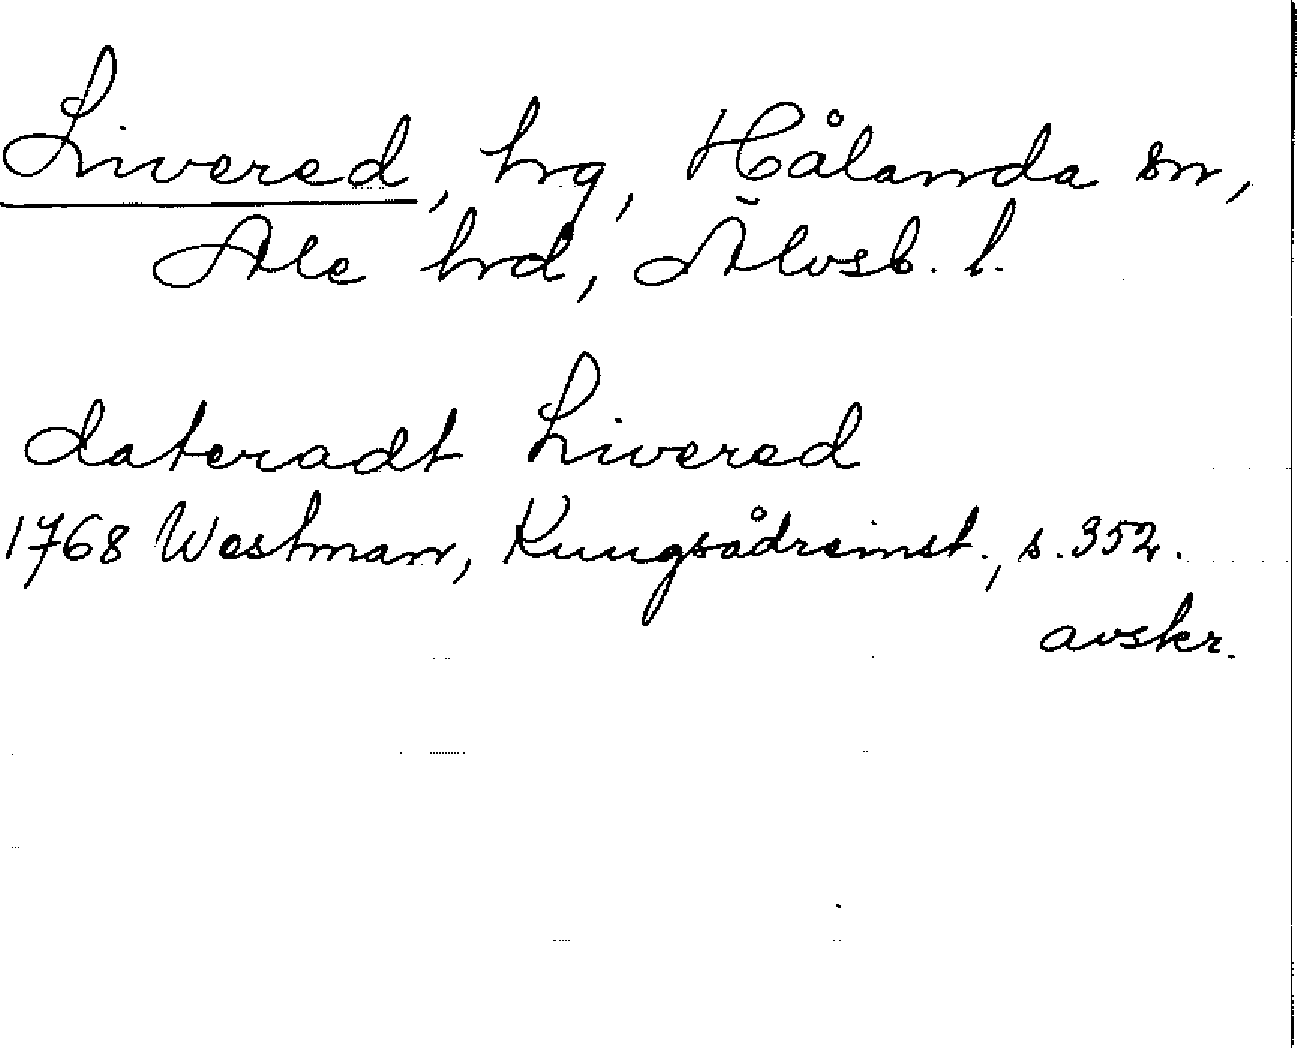 Livered, hg, Hålanda sn,
Ale hd, Älvsb. l.
dateradt Livered
1768 Westman, Kungsådreinst., s. 352.
avskr.